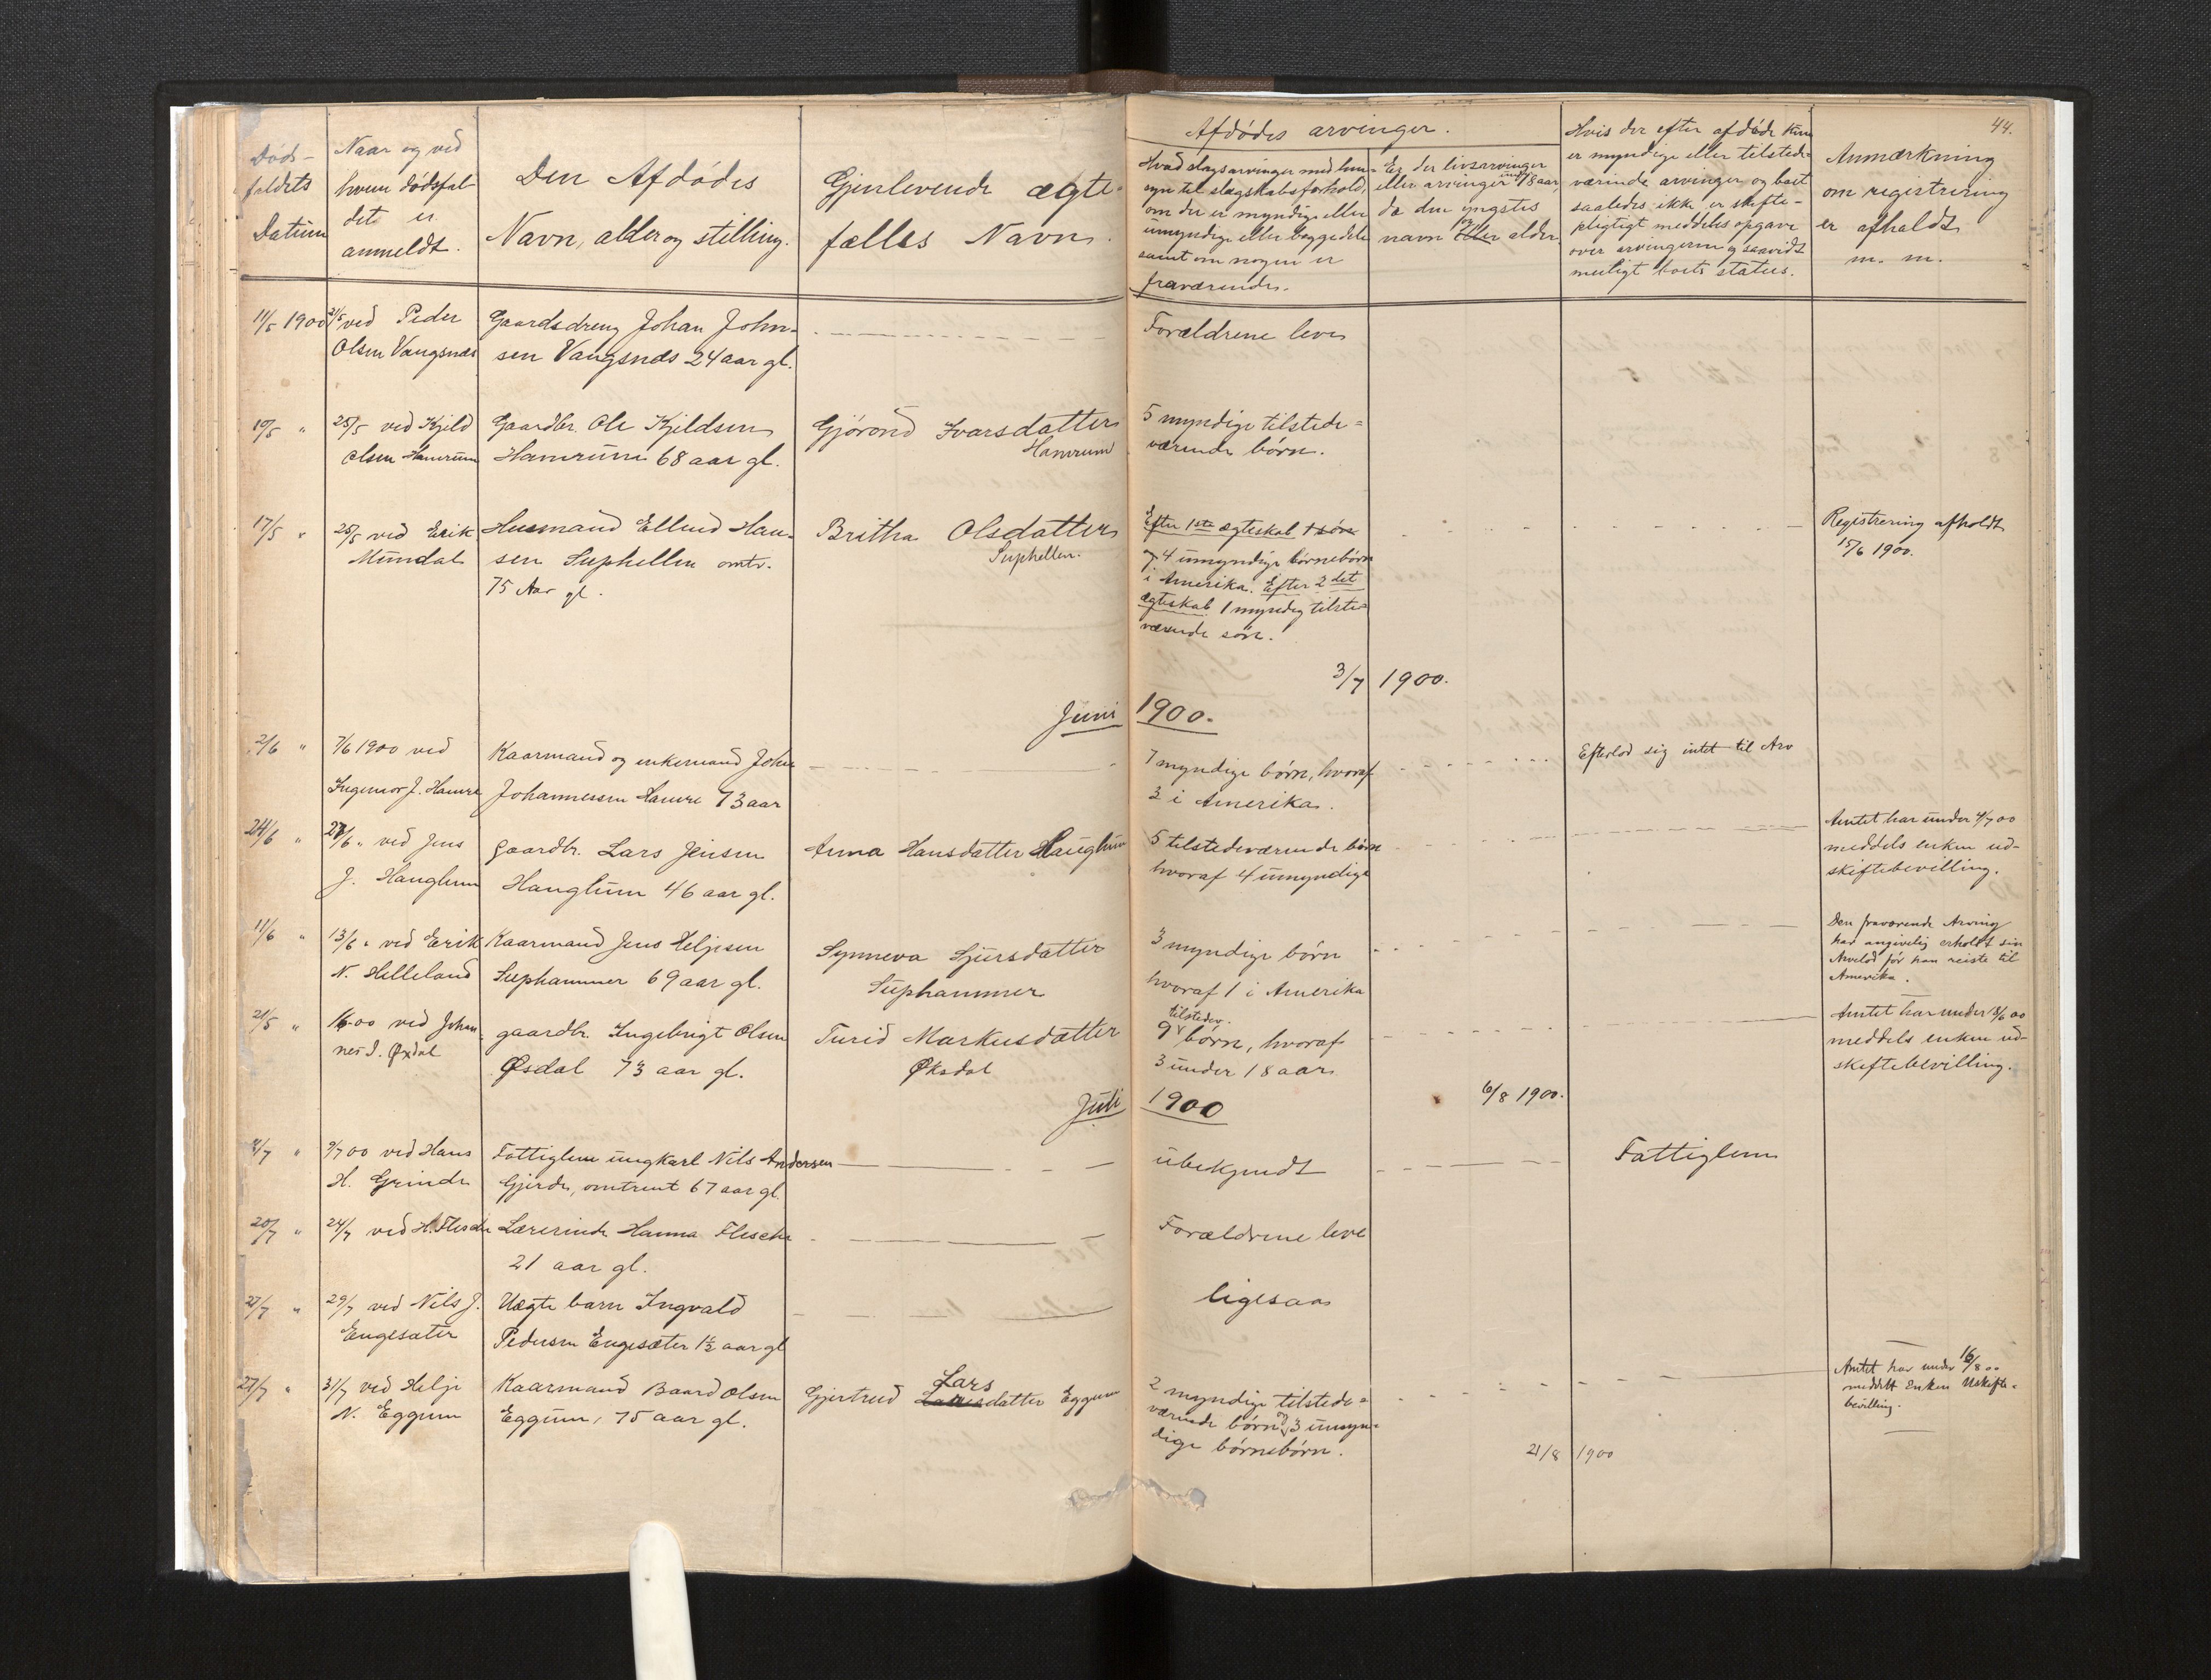 44.
Døds-
faldets
Datum
Naar og ved
hvem dødsfal-
det er
anmeldt.
Den Afdødes
Navn, alder og stilling.
Gjenlevende ægte-
fælles Navn.
Afdødes arvinger.
Hvad slags arvinger med hen-
syn til slægtskabsforhold,
om de er myndige eller
umyndige eller beggedele
samt om nogen er
fraværende.
Er der livsarvinger
eller arvinger under 18 aar,
da den yngstes
navn eller og alder.
Hvis der efter afdøde kun
er myndige eller tilstede-
værende arvinger og boet
saaledes ikke er skifte-
pligtigt meddeles opgave
over arvingerne og saavidt
muligt boets status.
Anmærkning
om registrering
er afholdt
m. m.
11/5 1900
21/5 ved Peder
Olsen Vangsnæs
Gaardsdreng Johan John-
sen Vangsnæs 24 aar gl.
Forældrene lever
19/5 "
25/5 ved Kjeld
Olsen Hamrum
Gaardbr. Ole Kjeldsen
Hamrum 68 aar gl.
Gjørond Ivarsdatter
Hamrum
5 myndige tilstede-
værende børn.
17/5 "
25/5 ved Erik
Mundal
Husmand Ellend Han-
sen Suphellen omtr.
75 Aar gl.
Britha Olsdatter
Suphellen.
Efter 1ste ægteskab 1 søn
og 4 umyndige børnebørn
i Amerika. Efter 2det
ægteskab 1 myndig tilste-
værende søn.
Registrering afholdt
15/6 1900.
3/7 1900.
Juni 1900.
2/6 "
7/6 1900 ved
Ingemor J. Hamre
Kaarmand og enkemand John
Johannessen Hamre 73 aar
7 myndige børn, hvoraf
3 i Amerika.
Efterlod sig intet til Arv
24/6 "
27/6 " ved Jens
J. Hauglum
gaardbr. Lars Jensen
Hauglum 46 aar gl.
Anna Hansdatter Hauglum
5 tilstedeværende børn
hvoraf 4 umyndige
Amtet har under 4/7 00
meddels enken ud-
skiftebevilling.
11/6 "
13/6 " ved Erik
N. Helleland
Kaarmand Jens Heljesen
Suphammer 69 aar gl.
Synneva Sjursdatter
Suphammer
3 myndige børn
hvoraf 1 i Amerika
Den fraværende Arving
har angivelig erholdt sin
Arvelod før han reiste til
Amerika.
21/5 "
1/6 00 ved Johan-
nes I. Øxdal
gaardbr. Ingebrigt Olsen
Øsdal 73 aar gl.
Turid Markusdatter
Øksdal
tilstedev.
9 børn, hvoraf
3 under 18 aar
Amtet har under 18/6 00
meddels enken ud-
skiftebevilling.
6/8 1900.
Juli 1900
8/7 "
9/7 00 ved Hans
H. Grinde
Fattiglem ungkarl Nils Andersen
Gjerde, omtrent 67 aar gl.
ubekjendt
Fattiglem
20/7 "
24/7 ved H. Flesche
Lærerinde Hanna Flesche
21 aar gl.
Forældrene leve
27/7 "
29/7 ved Nils J.
Engesæter
Uægte barn Ingvald
Pedersen Engesæter 1½ aar gl
ligesaa
27/7 "
31/7 ved Helje
N. Eggum
Kaarmand Baard Olsen
Eggum, 75 aar gl.
Lars
Gjertrud datter Eggum
2 myndige tilstede-
værende børn og 3 umyn-
dige børnebørn.
Amtet har under 16/8 00
meddelt Enken Uskifte-
bevilling.
21/8 1900